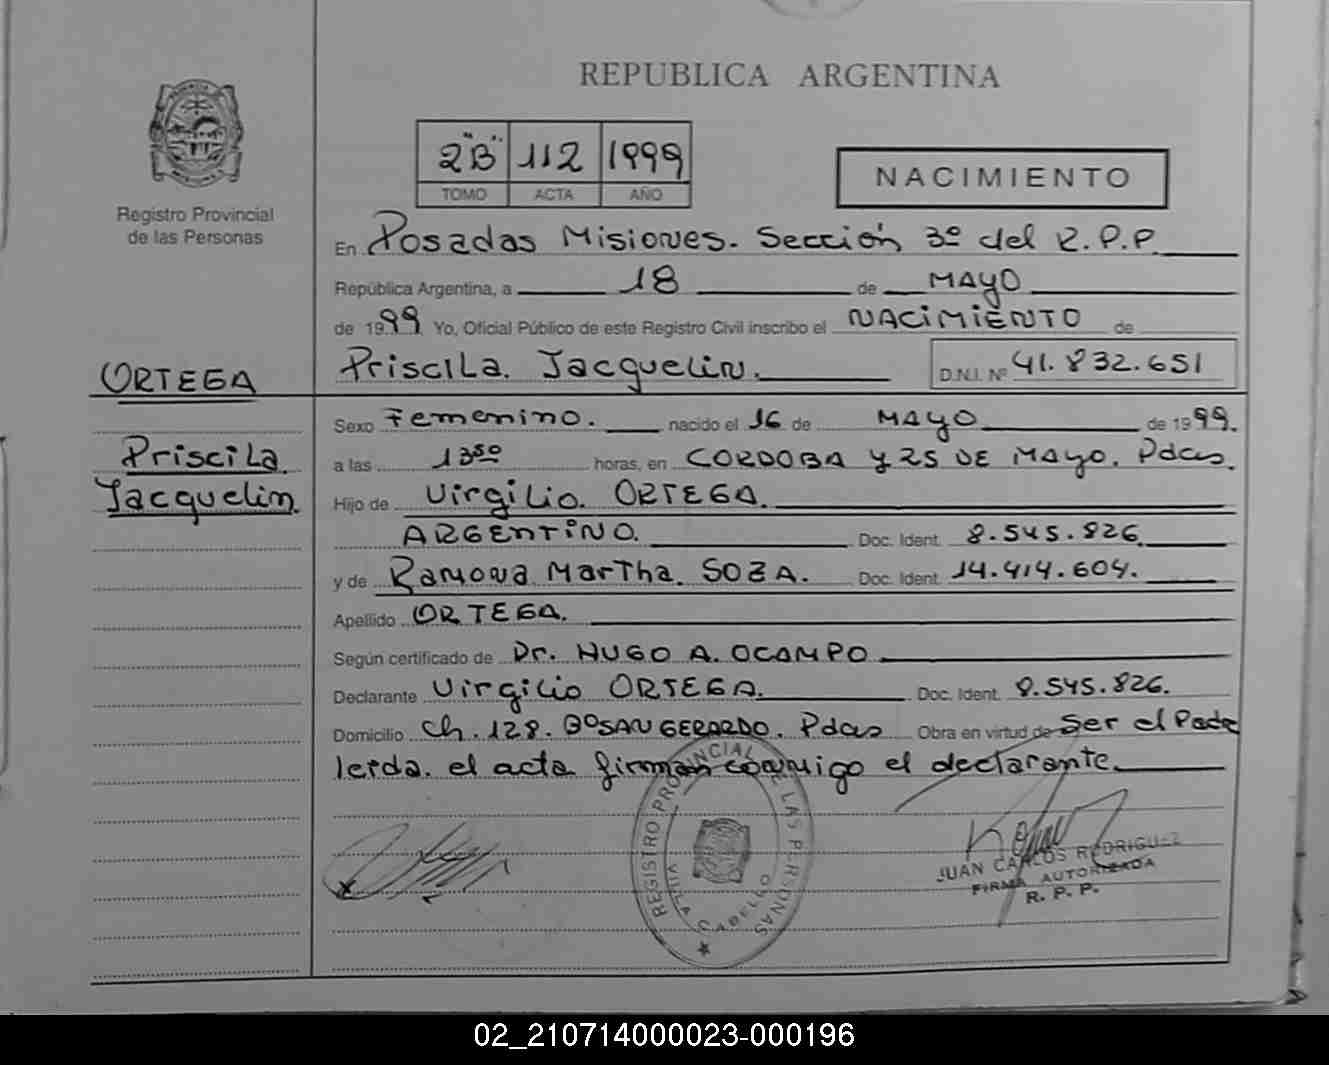 REPUBLICA ARGENTINA
2"B" 112 1999
TOMO ACTA AÑO
NACIMIENTO
Registro Provincial
de las Personas
En Posadas Misiones. Sección 3º del R.P.P.
República Argentina, a 18 de MAYO
de 1999 Yo, Oficial Público de este Registro Civil inscribo el NACIMIENTO de
Priscila. Jacquelin. D.N.I. Nº 41.832.651
ORTEGA
Priscila
Jacquelin.
Sexo Femenino. nacido el 16 de MAYO de 1999.
a las 13 50 horas, en CORDOBA y 25 DE MAYO. Pdas.
Hijo de Virgilio. ORTEGA.
ARGENTINO. Doc. Ident. 8.545.826.
y de Ramona Martha. SOZA. Doc. Ident. 14.414.604.
Apellido ORTEGA.
Según certificado de Dr. HUGO A. OCAMPO
Declarante Virgilio ORTEGA. Doc. Ident. 8.545.826.
Domicilio Ch. 128. Bº SAN GERARDO. Pdas Obra en virtud de Ser el Padre
leida. el acta firman conmigo el declarante.
REGISTRO PROVINCIAL DE LAS PERSONAS
VILLA CABELLO
JUAN CARLOS RODRIGUEZ
FIRMA AUTORIZADA
R. P. P.
02_210714000023-000196